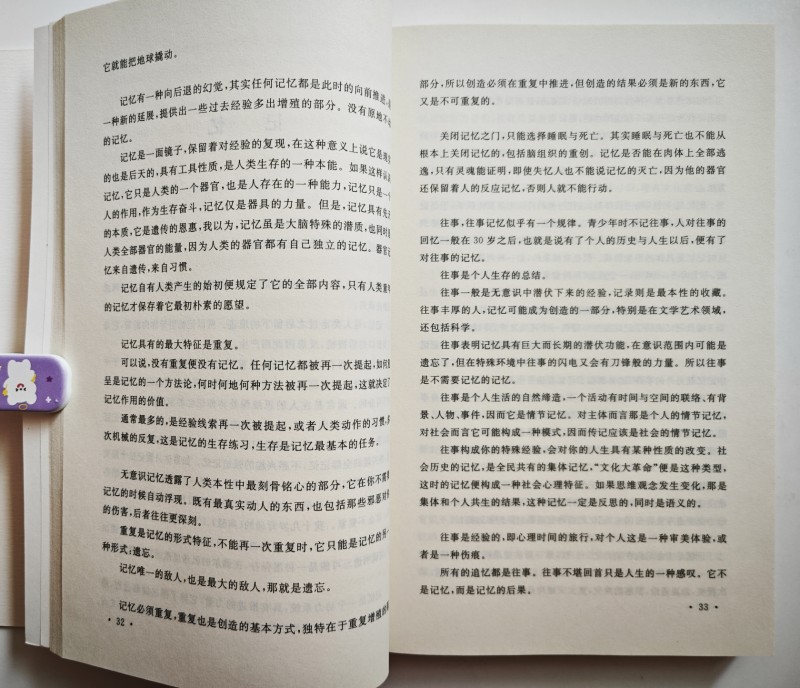 它就能把地球撬动。
记忆有一种向后退的幻觉,其实任何记忆都是此时的向前推进,是
一种新的延展,提供出一些过去经验多出增殖的部分。没有原地不动
的记忆。
记忆是一面镜子,保留着对经验的复现,在这种意义上说它是
的也是后天的,具有工具性质,是人类生存的一种本能。如果这样认
记忆,它只是人类的一个器官,也是人存在的一种能力,记忆只是一
人的作用,作为生存奋斗,记忆仅是器具的力量。但是,记忆具有先
的本质,它是遗传的恩惠,我以为,记忆虽是大脑特殊的潜质,也同时
人类全部器官的能量,因为人类的器官都有自己独立的记忆。器官记
忆来自遗传,来自习惯。
记忆自有人类产生的始初便规定了它的全部内容,只有人类童年
的记忆才保存着它最初朴素的愿望。
记忆具有的最大特征是重复。
可以说,没有重复便没有记忆。任何记忆都被再一次提起,如何
呈是记忆的一个方法论,何时何地何种方法被再一次提起,这就决定了
记忆作用的价值。
通常最多的,是经验线索再一次被提起,或者人类动作的习惯,再
次机械的反复,这是记忆的生存练习,生存是记忆最基本的任务。
无意识记忆透露了人类本性中最刻骨铭心的部分,它在你不需要
记忆的时候自动浮现。既有最真实动人的东西,也包括那些邪恶对你
的伤害,后者往往更深刻。
重复是记忆的形式特征,不能再一次重复时,它只能是记忆的另一
种形式:遗忘。
记忆唯一的敌人,也是最大的敌人,那就是遗忘。
记忆必须重复,重复也是创造的基本方式,独特在于重复增殖的
· 32 ·
部分,所以创造必须在重复中推进,但创造的结果必须是新的东西,它
又是不可重复的。
关闭记忆之门,只能选择睡眠与死亡。其实睡眠与死亡也不能从
根本上关闭记忆的,包括脑组织的重创。记忆是否能在肉体上全部逃
逸,只有灵魂能证明,即使失忆人也不能说记忆的灭亡,因为他的器官
还保留着人的反应记忆,否则人就不能行动。
往事,往事记忆似乎有一个规律。青少年时不记往事,人对往事的
回忆一般在 30 岁之后,也就是说有了个人的历史与人生以后,便有了
对往事的记忆。
往事是个人生存的总结。
往事一般是无意识中潜伏下来的经验,记录则是最本性的收藏。
往事丰厚的人,记忆可能成为创造的一部分,特别是在文学艺术领域,
还包括科学。
往事表明记忆具有巨大而长期的潜伏功能,在意识范围内可能是
遗忘了,但在特殊环境中往事的闪电又会有刀锋般的力量。所以往事
是不需要记忆的记忆。
往事是个人生活的自然缔造,一个活动有时间与空间的联络、有背
景、人物、事件,因而它是情节记忆。对主体而言那是个人的情节记忆,
对社会而言它可能构成一种模式,因而传记应该是社会的情节记忆。
往事构成你的特殊经验,会对你的人生具有某种性质的改变。社
会历史的记忆,是全民共有的集体记忆,“文化大革命”便是这种类型,
这时的记忆便构成一种社会心理特征。如果思维观念发生变化,那是
集体和个人共生的结果,这种记忆一定是反思的,同时是语义的。
往事是经验的,即心理时间的旅行,对个人这是一种审美体验,或
者是一种伤痕。
所有的追忆都是往事。往事不堪回首只是人生的一种感叹。它不
是记忆,而是记忆的后果。
· 33 ·